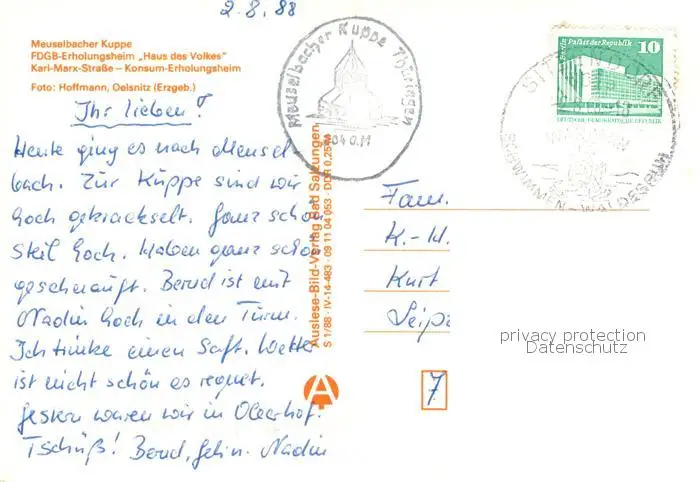 2.8.88
Meuselbacher Kuppe
FDGB-Erholungsheim „Haus des Volkes"
Karl-Marx-Straße – Konsum-Erholungsheim
Foto: Hoffmann, Oelsnitz (Erzgeb.)
Ihr lieben!
Heute ging es nach Meusel-
bach. Zur Kuppe sind wir
hoch gekrackselt. Ganz schön
steil hoch. Haben ganz schön
geschnauft. Bernd ist mit
Nadin hoch in den Turm.
Ich trinke einen Saft. Wetter
ist nicht schön es regnet.
Gestern waren wir in Oberhof.
Tschüß! Bernd, Nadin
Meuselbacher Kuppe Thüringen
Auslese-Bild-Verlag Bad Salzungen
S 1/88 · IV-14-483 · 09 11 04 053 · DDR 0,25 M
A
Berlin, Palast der Republik
10
DEUTSCHE DEMOKRATISCHE REPUBLIK
SCHWIMMEN
Fam.
K.-H.
Kurt
Leipz
7
privacy protection
Datenschutz